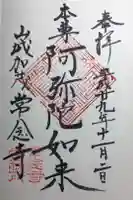 奉拝
平成廿九年十一月二日
本尊
阿弥陀如来
山城加茂
常念寺